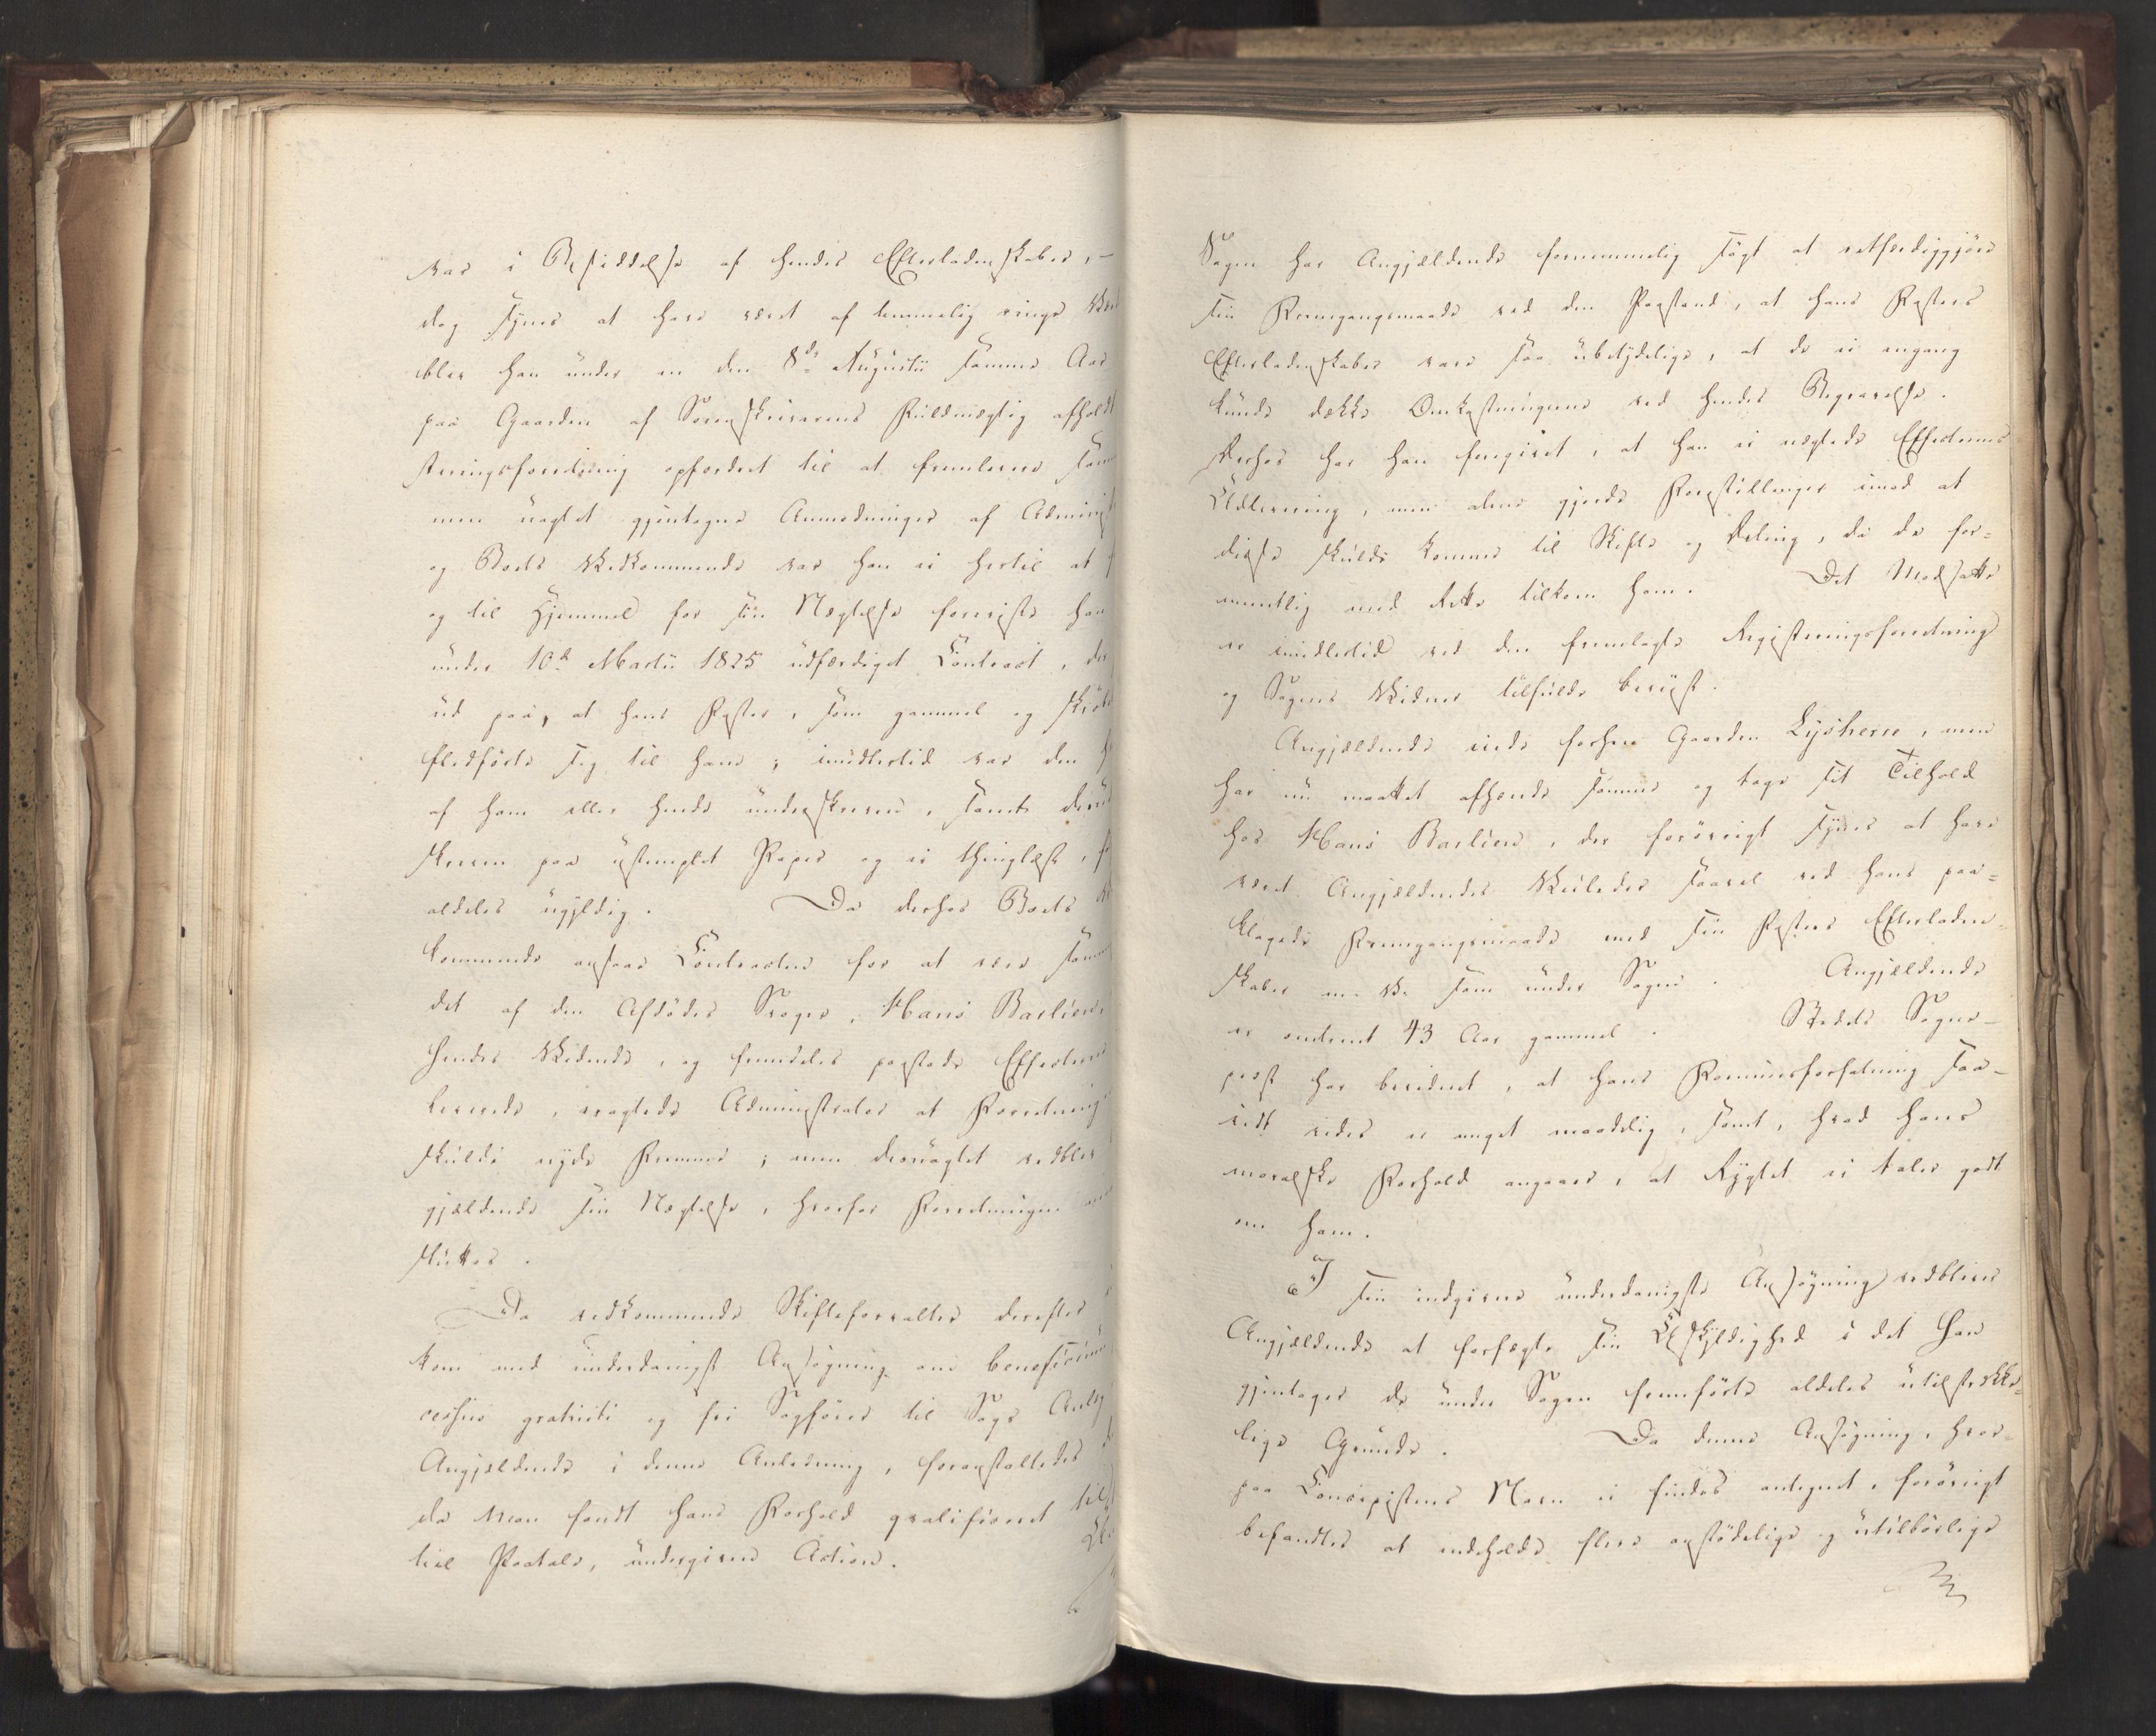 var i Besiddelse af hendes Efterladenskaber, –
dog synes at have været af temmelig ringe Vær
blev han under en den 8de Augustii samme Aar
paa Gaarden af Sorenskriverens Fuldmægtig afholdt
streringsforretning opfordret til at fremlevere samm
men uagtet gjentagne Anmodninger af Administ
og Boets Vedkommende var han ei hertil at
og til Hjemmel for sin Nægtelse foreviste han
under 10de Martii 1825 udfærdiget Contract, der
ud paa, at hans Søster, som gammel og skrøbe
fledførte sig til ham; imidlertid var den h
af ham eller hende underskreven, samt desud
skreven paa ustemplet Papir og ei thinglæst,
aldeles ugyldig. Da derhos Boets
kommende ansaae Contracten for at være samm
det af den Afdødes Svoger, Hans Barlien,
hendes Vidende, og fremdeles paastode Effecterne
leverede, vægrede Administrator at Forretning
skulde nyde Fremme; men desuagtet vedblev
gjældende sin Nægtelse, hvorfor Forretningen
sluttes.
Da vedkommende Skifteforvalter derefter
kom med underdanigst Ansøgning om beneficium
cessus gratuiti og fri Sagfører til Sags Anlæg
Angjældende i denne Anledning, foranstaltedes
da man fandt hans Forhold qvalificeret til
tiel Paatale, undergiven Action.
Sagen har Angjældende fornemmelig søgt at retfærdiggjøre
sin Fremgangsmaade ved den Paastand, at hans Søsters
Efterladenskaber vare saa ubetydelige, at de ei engang
kunde dække Omkostningerne ved hendes Begravelse.
Derhos har han foregivet, at han ei nægtede Effecternes
Udlevering, men alene gjorde Forestillinger imod at
disse skulde komme til Skifte og Deling, da de for=
mentlig med Rette tilkom ham. Det Modsatte
er imidlertid ved den fremlagte Registreringsforretning
og Sagens Vidner tilfulde beviist.
Angjældende eiede forhen Gaarden Lysheroe, men
har nu maattet afhænde samme og tage sit Tilhold
hos Hans Barlien, der forøvrigt synes at have
været Angjældendes Veileder saavel ved hans paa=
klagede Fremgangsmaade med sin Søsters Efterladen=
skaber m. v. som under Sagen. Angjældende
er omtrent 43 Aar gammel. Stedets Sogne=
præst har bevidnet, at hans Formuesforfatning saa=
vidt vides er meget maadelig, samt, hvad hans
moralske Forhold angaaer, at Rygtet ei taler godt
om ham.
I sin indgivne underdanigste Ansøgning vedbliver
Angjældende at forfægte sin Uskyldighed i det han
gjentager de under Sagen fremførte aldeles utilstrække=
lige Grunde. Da denne Ansøgning, hvor=
paa Concipistens Navn ei findes antegnet, forøvrigt
befandtes at indeholde flere anstødelige og utilbørlige